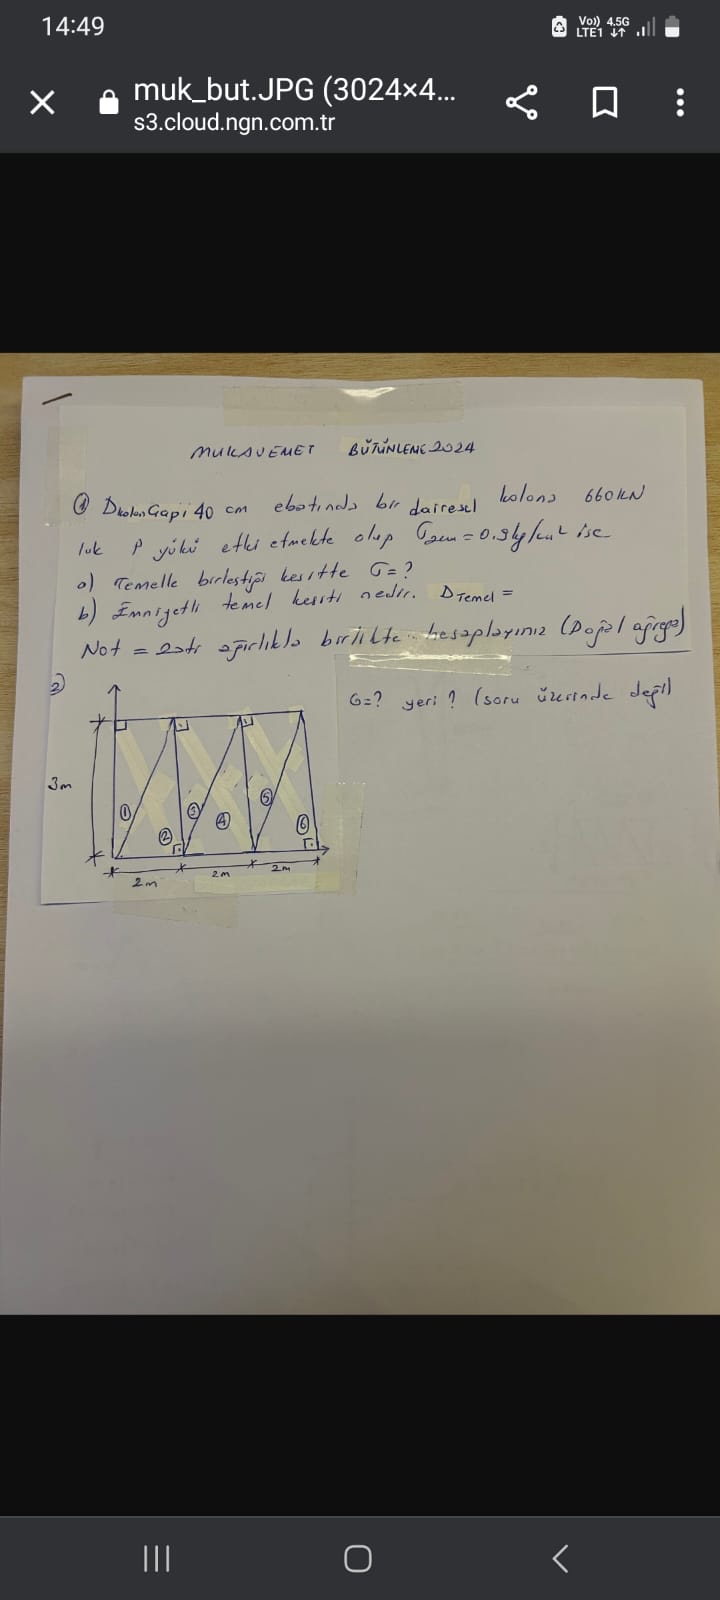 14:49
Vo)) 4.5G
LTE1 ↓↑
muk_but.JPG (3024×4...
s3.cloud.ngn.com.tr
MUKAVEMET BÜTÜNLEME 2024
① Dkolon Çapı 40 cm ebatında bir dairesel kolona 660 kN
luk P yükü etki etmekte olup Gzem = 0.9 kg/cm² ise
a) Temelle birleştiği kesitte G = ?
b) Emniyetli temel kesiti nedir. DTemel =
Not = Zati ağırlıkla birlikte hesaplayınız (Doğal agrega)
2)
G=? yeri? (soru üzerinde değil)
3m
① ② ③ ④ ⑤ ⑥
2m 2m 2m